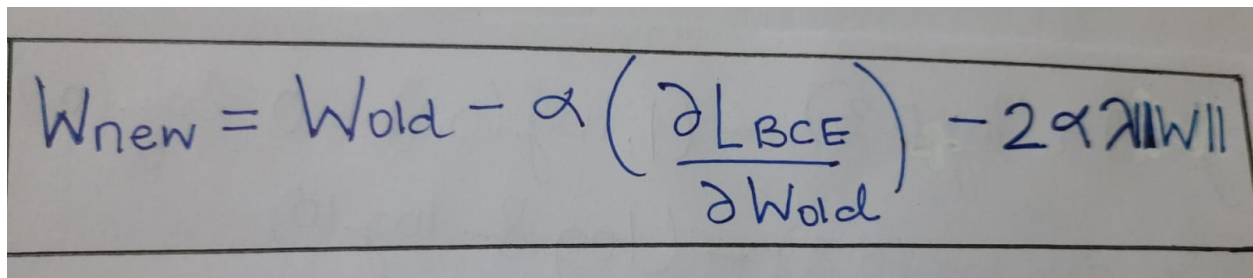 Wnew = Wold - α ( ∂LBCE / ∂Wold ) - 2αλ||W||